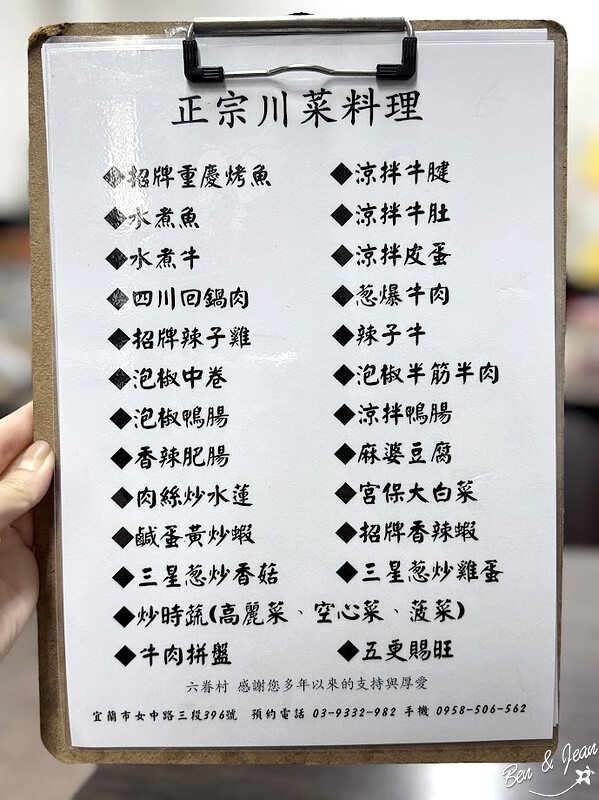 正宗川菜料理
◆招牌重慶烤魚 ◆涼拌牛腱
◆水煮魚 ◆涼拌牛肚
◆水煮牛 ◆涼拌皮蛋
◆四川回鍋肉 ◆葱爆牛肉
◆招牌辣子雞 ◆辣子牛
◆泡椒中卷 ◆泡椒半筋半肉
◆泡椒鴨腸 ◆涼拌鴨腸
◆香辣肥腸 ◆麻婆豆腐
◆肉絲炒水蓮 ◆宮保大白菜
◆鹹蛋黃炒蝦 ◆招牌香辣蝦
◆三星葱炒香菇 ◆三星葱炒雞蛋
◆炒時蔬(高麗菜、空心菜、菠菜)
◆牛肉拼盤 ◆五更賜旺
六眷村 感謝您多年以來的支持與厚愛
宜蘭市女中路三段396號 預約電話 03-9332-982 手機 0958-506-562
Ben & Jean